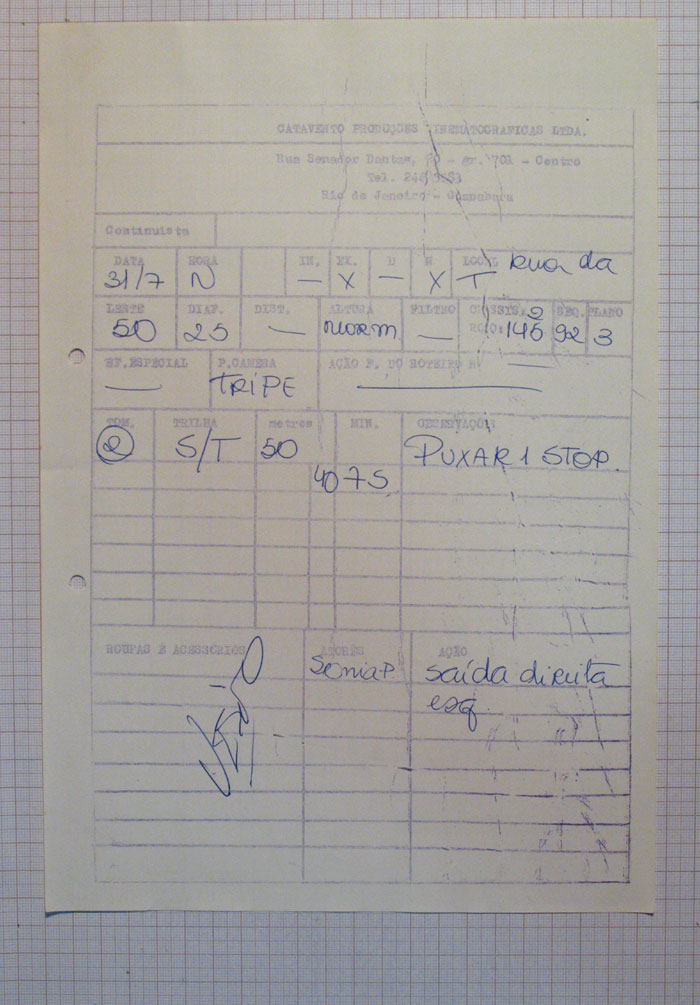 CATAVENTO PRODUÇOES CINEMATOGRAFICAS LTDA.
Rua Senador Dantas, 20 - gr. 701 - Centro
Tel.
Rio de Janeiro - Guanabara
Continuista
DATA HORA IN. EX. D N LOCAL Rua da
31/7 N — X — X T
LENTE DIAF. DIST. ALTURA FILTRO CHASSIS. 2 SEQ. PLANO
50 25 — norm. — ROLO: 145 92 3
EF.ESPECIAL P.CAMERA AÇÃO F. DO ROTEIRO
— TRIPE —
TOM. TRILHA metros MIN. OBSERVAÇÕES
2 S/T 50 PUXAR 1 STOP.
40 75
ROUPAS E ACESSORIOS ATORES AÇÃO
Sonia P. saída direita
esq.